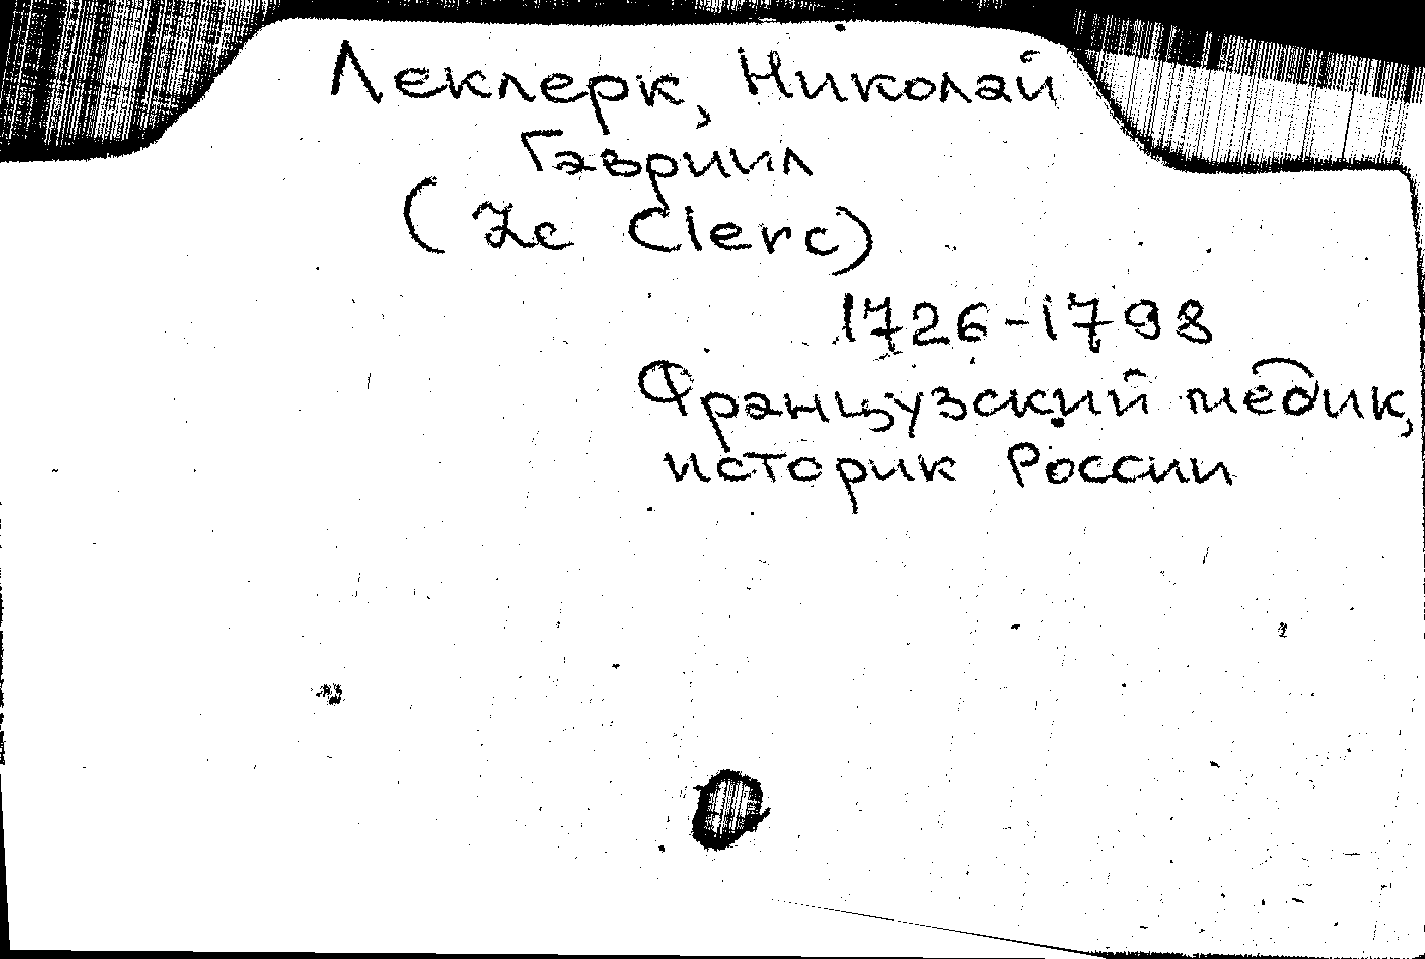 Леклерк, Николай
Гавриил
(Le Clerc)
1726-1798
Французский медик,
историк России